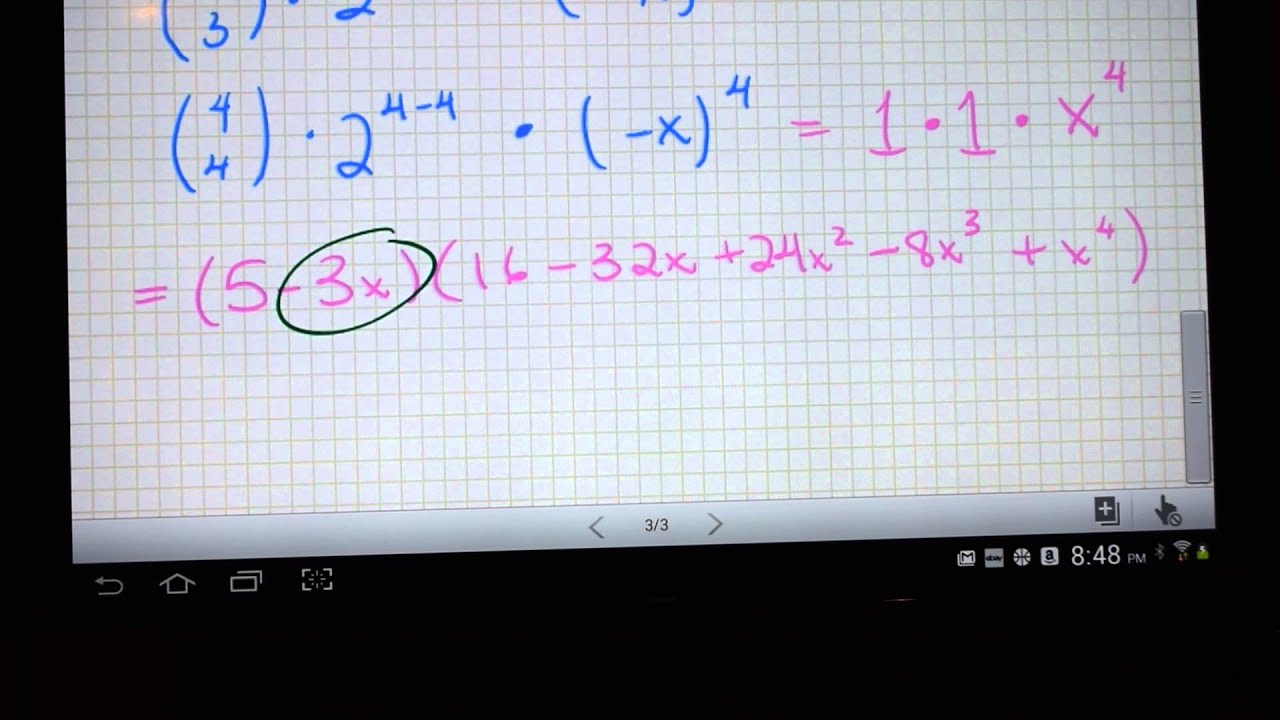 (3) · 2
(4 4) · 2^{4-4} · (-x)^4 = 1 · 1 · x^4
= (5 - 3x)(16 - 32x + 24x² - 8x³ + x⁴)
3/3
ebay a 8:48 PM